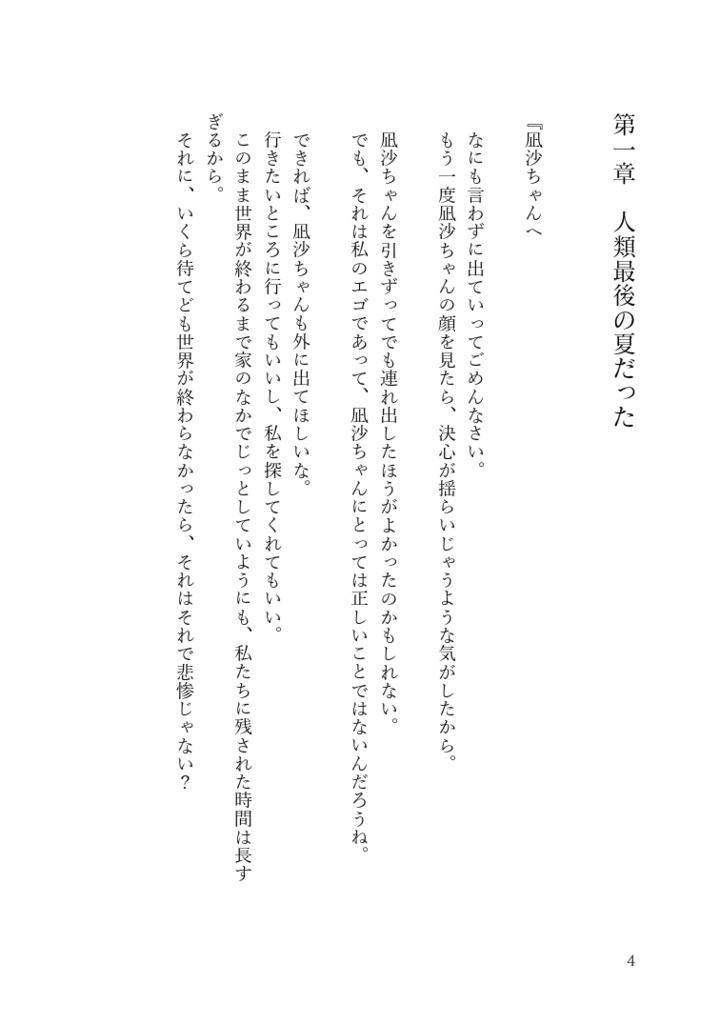 第一章　人類最後の夏だった
『凪沙ちゃんへ
なにも言わずに出ていってごめんなさい。
もう一度凪沙ちゃんの顔を見たら、決心が揺らいじゃうような気がしたから。
凪沙ちゃんを引きずってでも連れ出したほうがよかったのかもしれない。
でも、それは私のエゴであって、凪沙ちゃんにとっては正しいことではないんだろうね。
できれば、凪沙ちゃんも外に出てほしいな。
行きたいところに行ってもいいし、私を探してくれてもいい。
このまま世界が終わるまで家のなかでじっとしていようにも、私たちに残された時間は長す
ぎるから。
それに、いくら待てども世界が終わらなかったら、それはそれで悲惨じゃない？
4